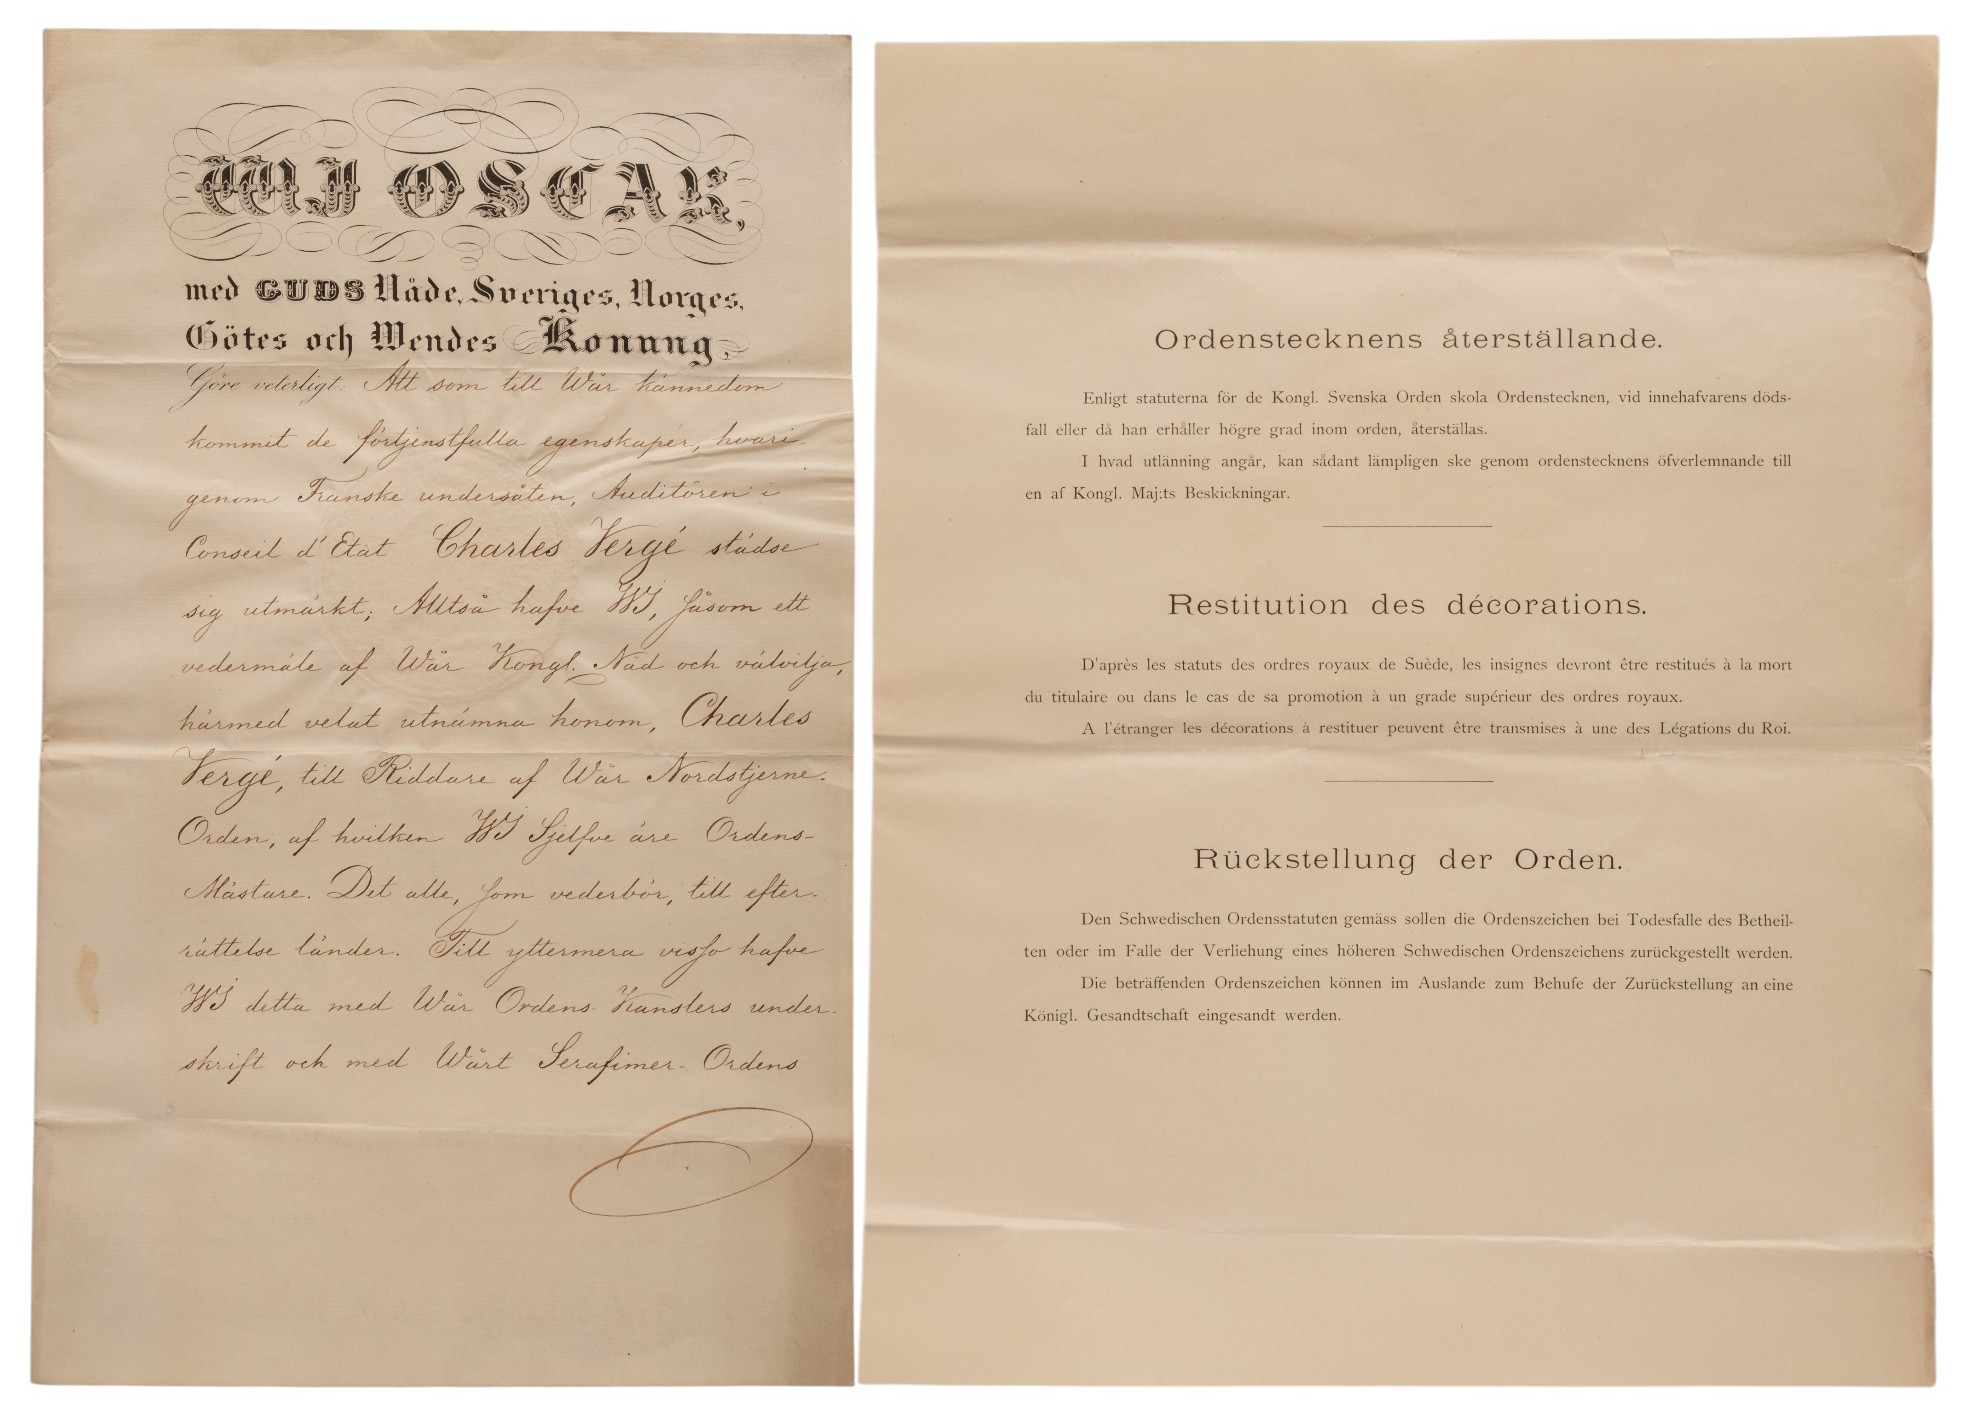 WJ OSCAR,
med GUDS Nåde, Sveriges, Norges,
Götes och Wendes Konung,
Göre veterligt: Att som till Wår kännedom
kommit de förtjenstfulla egenskaper, hvari-
genom Franske undersåten, Auditören i
Conseil d'Etat Charles Vergé städse
sig utmärkt; Alltså hafve WJ, såsom ett
vedermäle af Wår Kongl. Nåd och välvilja,
härmed velat utnämna honom, Charles
Vergé, till Riddare af Wår Nordstjerne-
Orden, af hvilken WJ Sjelfve äre Ordens-
Mästare. Det alle, som vederbör, till efter-
rättelse länder. Till yttermera visso hafve
WJ detta med Wår Ordens-Kanslers under-
skrift och med Wårt Serafimer-Ordens
Ordenstecknens återställande.
Enligt statuterna för de Kongl. Svenska Orden skola Ordenstecknen, vid innehafvarens döds-
fall eller då han erhåller högre grad inom orden, återställas.
I hvad utlänning angår, kan sådant lämpligen ske genom ordenstecknens öfverlemnande till
en af Kongl. Maj:ts Beskickningar.
Restitution des décorations.
D'après les statuts des ordres royaux de Suède, les insignes devront être restitués à la mort
du titulaire ou dans le cas de sa promotion à un grade supérieur des ordres royaux.
A l'étranger les décorations à restituer peuvent être transmises à une des Légations du Roi.
Rückstellung der Orden.
Den Schwedischen Ordensstatuten gemäss sollen die Ordenszeichen bei Todesfalle des Betheil-
ten oder im Falle der Verliehung eines höheren Schwedischen Ordenszeichens zurückgestellt werden.
Die beträffenden Ordenszeichen können im Auslande zum Behufe der Zurückstellung an eine
Königl. Gesandtschaft eingesandt werden.